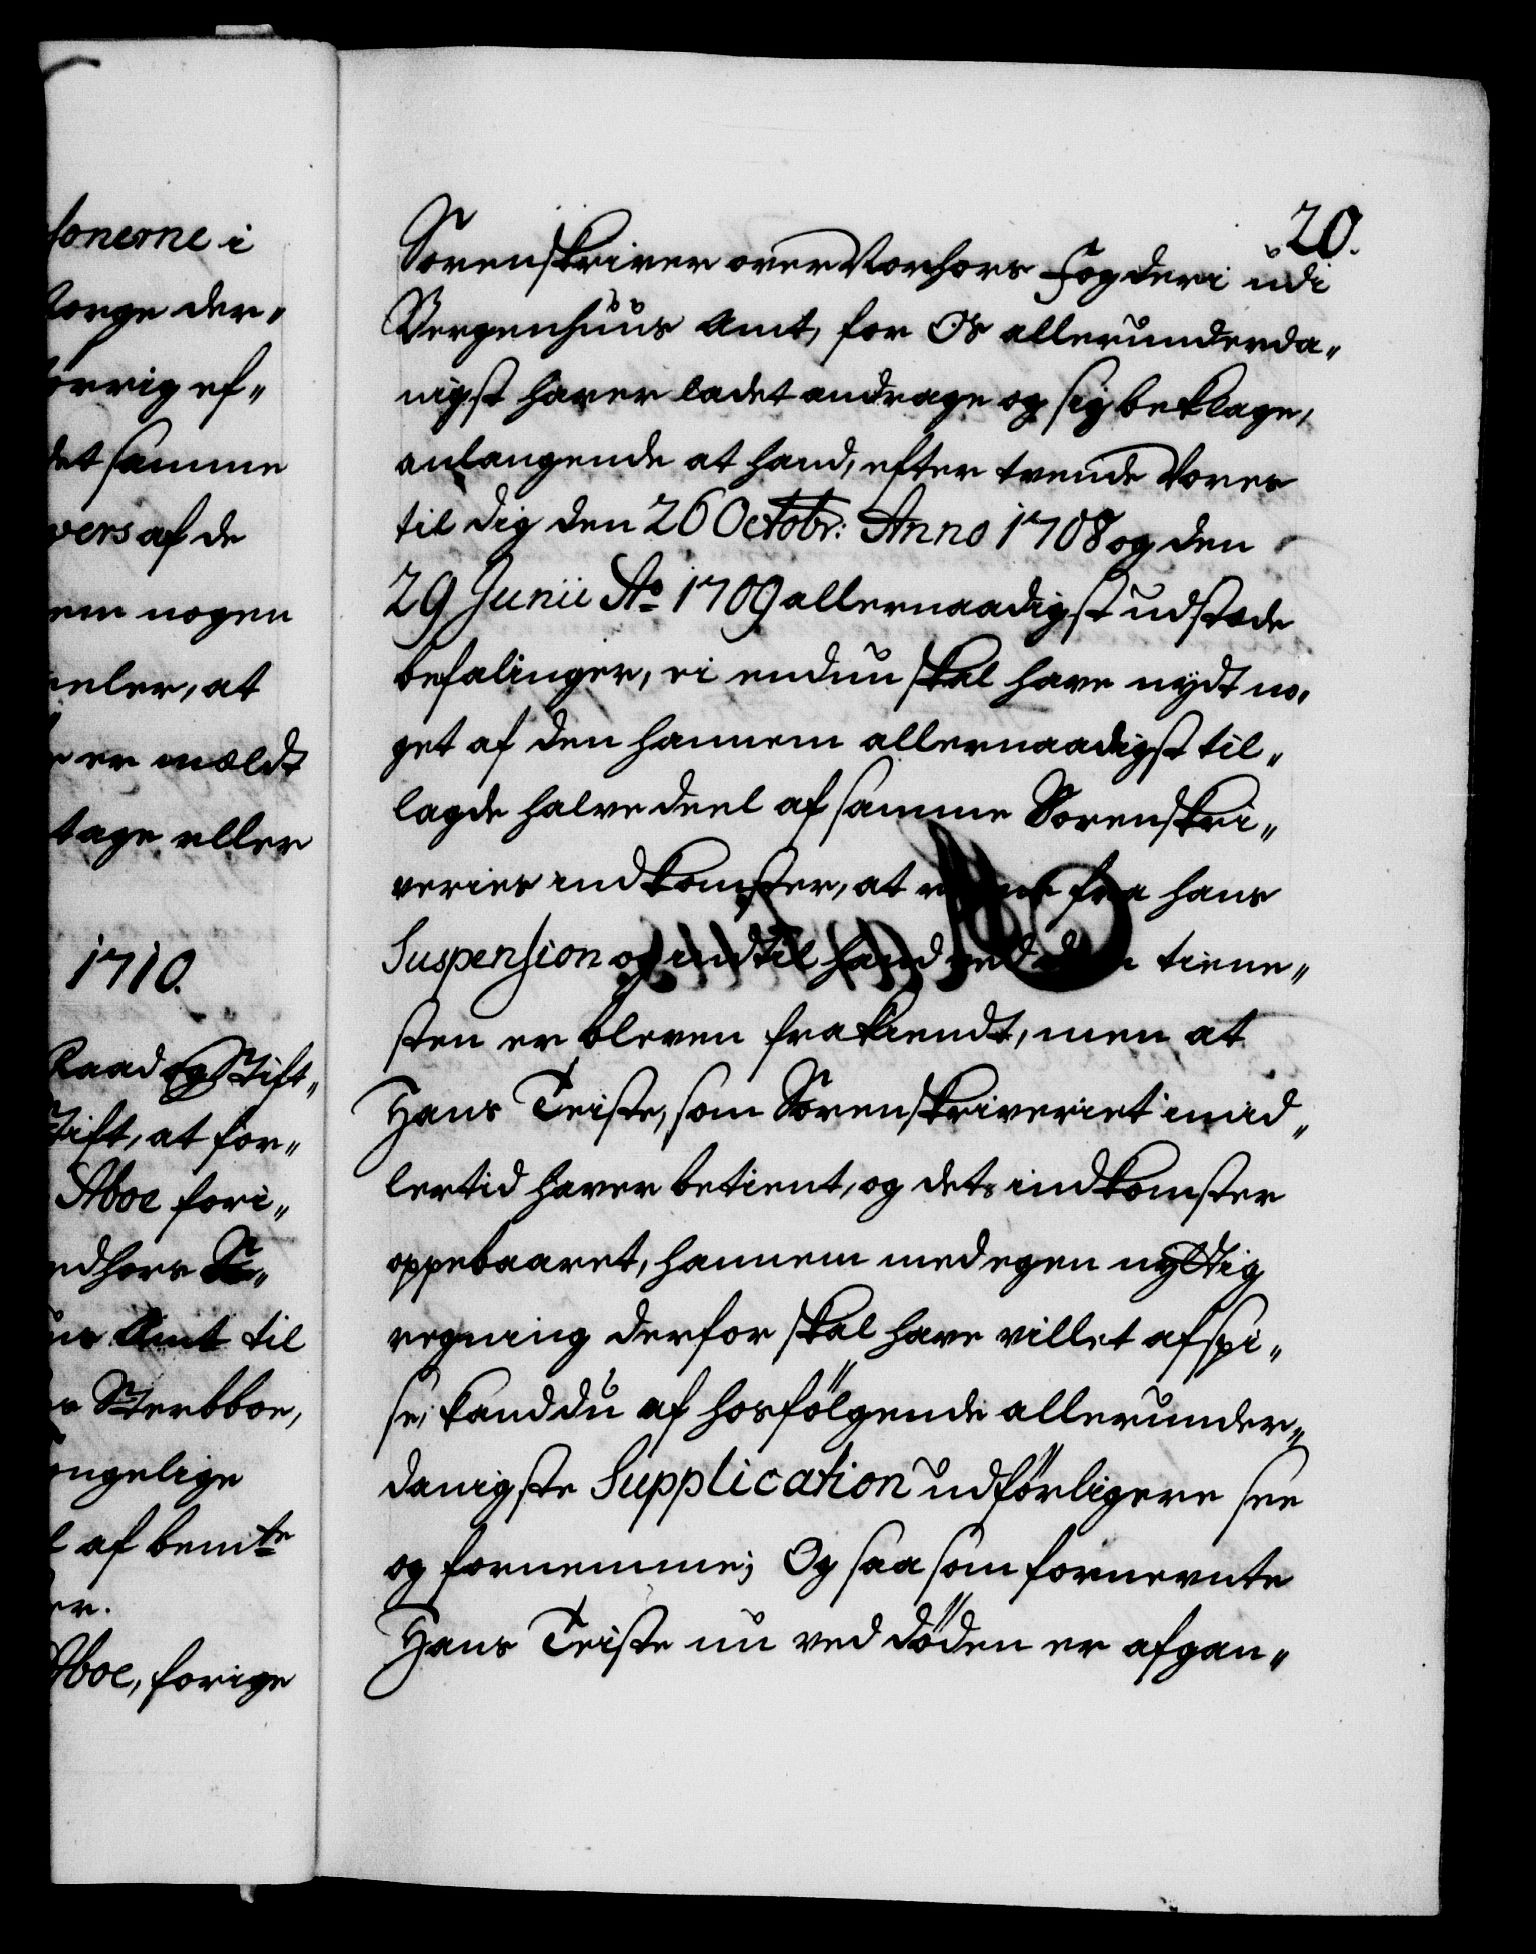 sonerne i
Norge der„
öfrig ef„
det samme
vers af de
em nogen
eeler, at
er meldt
tage eller
1710.
Raad og Stift„
Stift, at for„
Aboe fori„
ndhors So„
us Amt til
Sterbboe,
ongelige
af bemte
er.
Aboe, forige
20.
Sorenskriver over Vorhors Fogderi udi
Bergenhuus Amt, for Os allerunderda„
nigst haver ladet andrage og sig beklage,
anlangende at hand, efter trende Vores
til dig den 26 Octobr: Anno 1708 og den
29 Junii Ao 1709 allernaadigst udstæde
befalinger, ei endnu skal have nydt no„
get af den hannem allernaadigst til„
lagde halve deel af samme Sorenskri„
veries indkomster, at regne fra hans
Suspension og indtil hand ved dom tiene„
sten er bleven frakiendt, men at
Hans Teiste, som Sorenskriveriet imid„
lertid haver betient, og dets indkomster
oppebaaret, hannem med egen nyttig
regning derfor skal have villet afspi„
se, kand du af hosfölgende allerunder„
danigste Supplication udförligere see
og fornemme; Og saasom fornevnte
Hans Teiste nu ved döden er afgan„